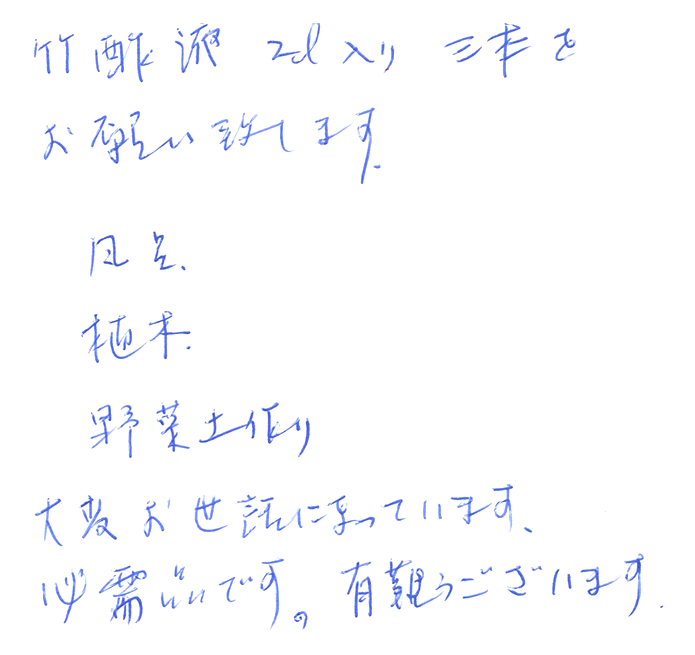 竹酢液 2ℓ入り 三本を
お願い致します.
風呂.
植木.
野菜土作り
大変お世話になっています、
必需品です。有難うございます.